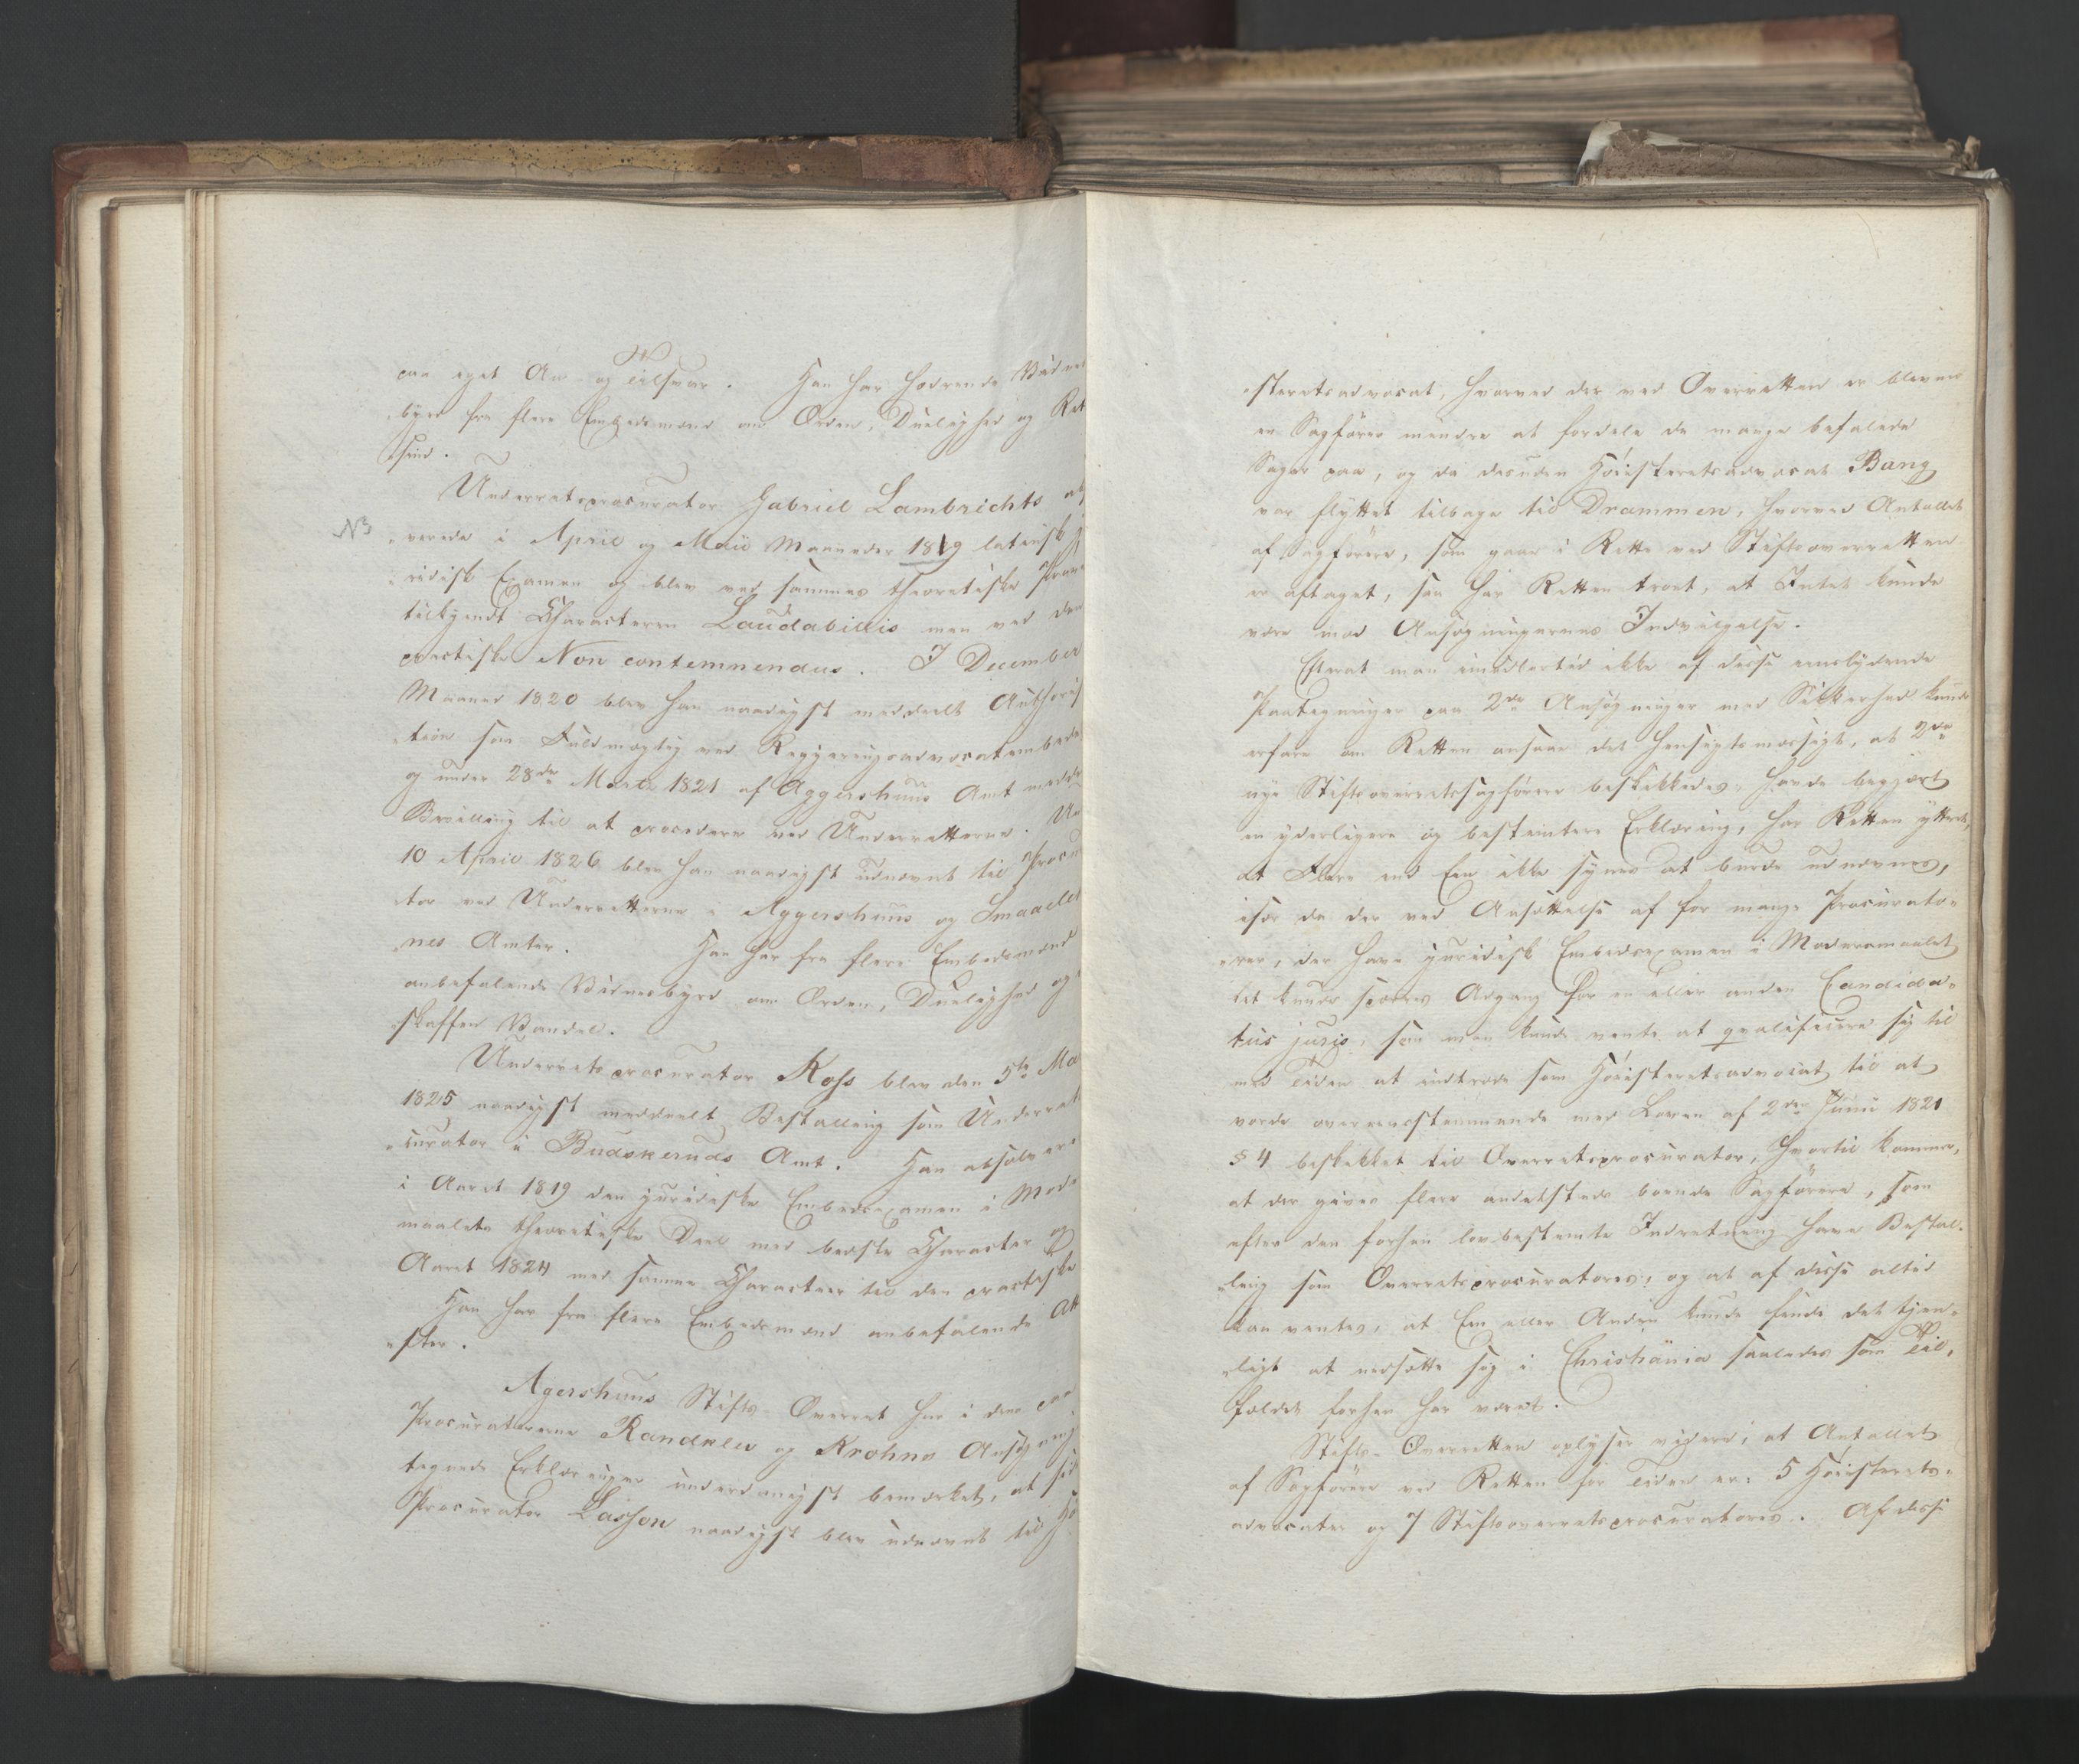 paa eget An- og Tilsvar. Han har hædrende Vidnes
„byrd fra flere Embedsmænd om Orden, Duelighed og Ret
„sind.
Underretsprocurator Gabriel Lambrichts ab
NB
„verede i April og Maii Maaneder 1819 latinsk j
„ridisk Examen og blev ved sammes theoretiske Prøve
tilkjendt Characteren Laudabilis men ved den
practiske Non contemnendus. I December
Maaned 1820 blev han naadigst meddeelt Authoris
„tion som Fuldmægtig ved Regjeringsadvocatembede
og under 28de Marts 1821 af Aggershuus Amt medde
Bevilling til at procedere ved Underretterne. Un
10 April 1826 blev han naadigst udnævnt til Procu
„tor ved Underretterne i Aggershuus og Smaaleh
„nes Amter. Han har fra flere Embedsmænd
anbefalende Vidnesbyrd om Orden, Duelighed og
„skaffen Vandel.
Underretsprocurator Ross blev den 5te Ma
1825 naadigst meddeelt Bestalling som Underret
„curator i Budskeruds Amt. Han absolvere
i Aaret 1819 den juridiske Embedsexamen i Mode
maalets theoretiske Deel med bedste Character og
Aaret 1824 med samme Character til den practiske
Han har fra flere Embedsmænd anbefalende Att
„ster.
Agershuus Stifts-Overret har i dens paa
Procuratorerne Randklev og Krohns Ansøgning
tegnede Erklæringer underdanigst bemærket, at sid
Procurator Lasson naadigst blev udnævnt til Hø
„steretsadvocat, hvorved der ved Overretten er bleven
en Sagfører mindre at fordele de mange befalede
Sager paa, og da desuden Høiesteretsadvocat Bang
var flyttet tilbage til Drammen, hvorved Antallet
af Sagførere, som gaae i Rette ved Stiftsoverretten
er aftaget, saa har Retten troet, at Intet kunde
være mod Ansøgningernes Indvilgelse.
Efterat man imidlertid ikke af disse eenslydende
Paategninger paa 2de Ansøgninger med Sikkerhed kunde
erfare om Retten ansaae det hensigtsmæssigt, at 2de
nye Stiftsoverretssagførere beskikkedes, havde begjært
en yderligere og bestemtere Erklæring, har Retten yttret,
at Flere end Een ikke synes at burde udnævnes,
især da der ved Ansættelse af for mange Procurato„
„rer, der have juridisk Embedsexamen i Modersmaalet
let kunde spærres Adgang for en eller anden Candida„
tus juris, som man kunde vente at qvalificere sig til
med Tiden at indtræde som Høiesteretsadvocat til at
vorde overeensstemmende med Loven af 2den Junii 1821
§ 4 beskikket til Overretsprocurator, hvortil kommer,
at der gives flere andetsteds boende Sagførere, som
efter den forhen lovbestemte Indretning have Bestal„
„ling som Overretsprocuratores, og at af disse altid
kan ventes, at Een eller Anden kunde finde det tjen„
„ligt at nedsætte sig i Christiania saaledes som Til„
fældet forhen har været.
Stifts-Overretten oplyser videre, at Antallet
af Sagførere ved Retten for Tiden er: 5 Høiesterets„
advocater og 7 Stiftsoverretsprocuratores. Af disse